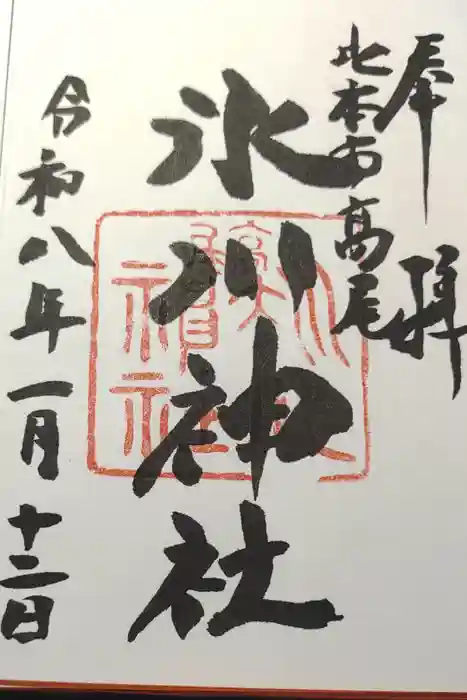 奉拝
北本市高尾
氷川神社
令和八年一月十二日